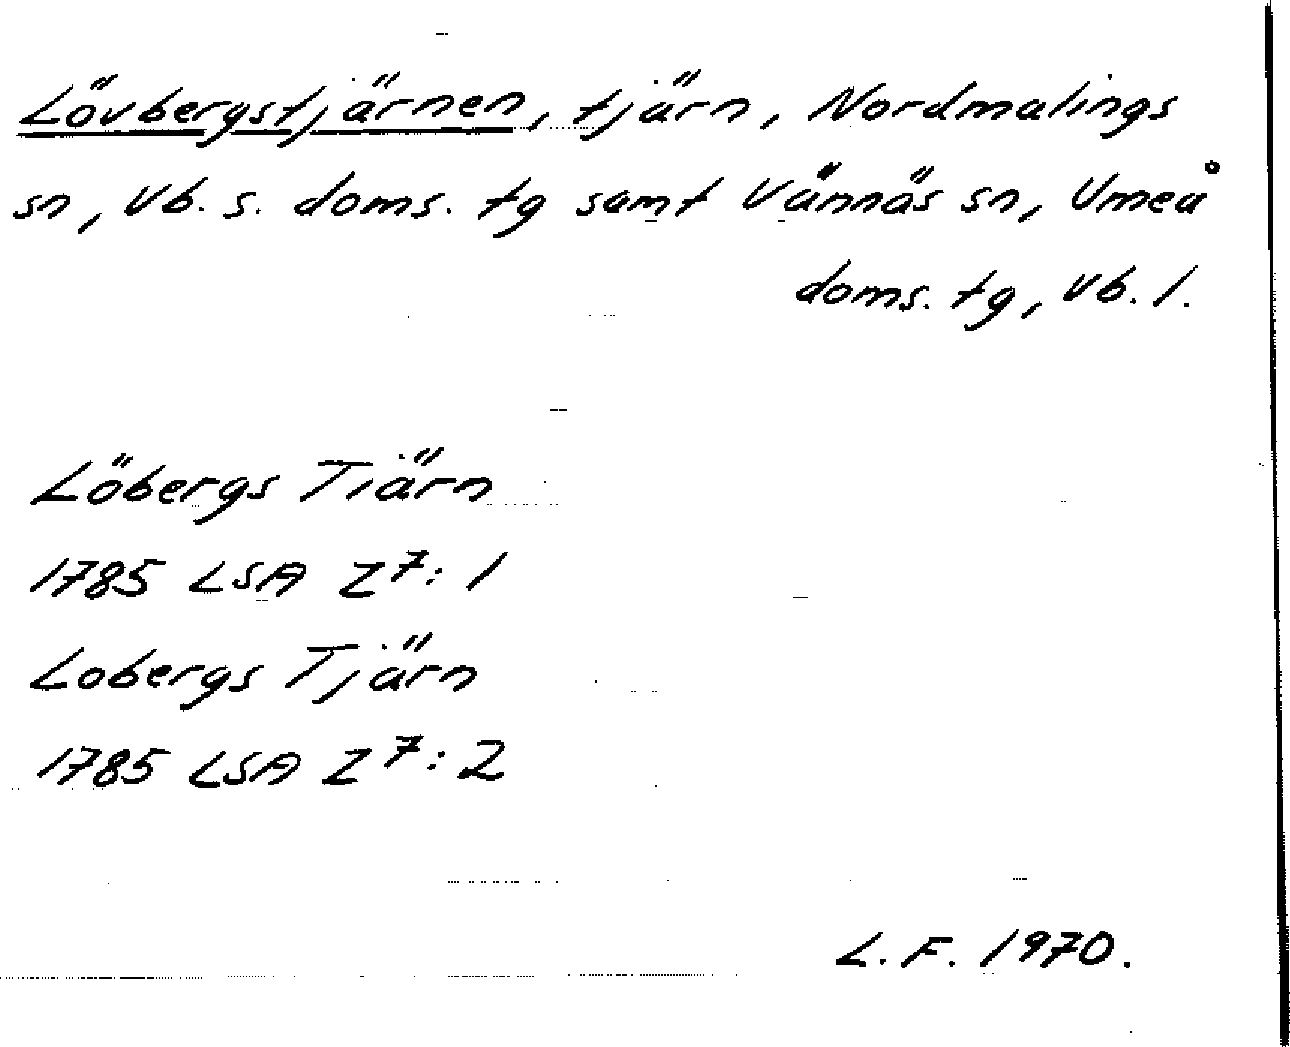 Lövbergstjärnen, tjärn, Nordmalings
sn, Vb. s. doms. tg samt Vännäs sn, Umeå
doms. tg, Vb. l.
Löbergs Tiärn
1785 LSA Z7: 1
Lobergs Tjärn
1785 LSA Z7: 2
L. F. 1970.